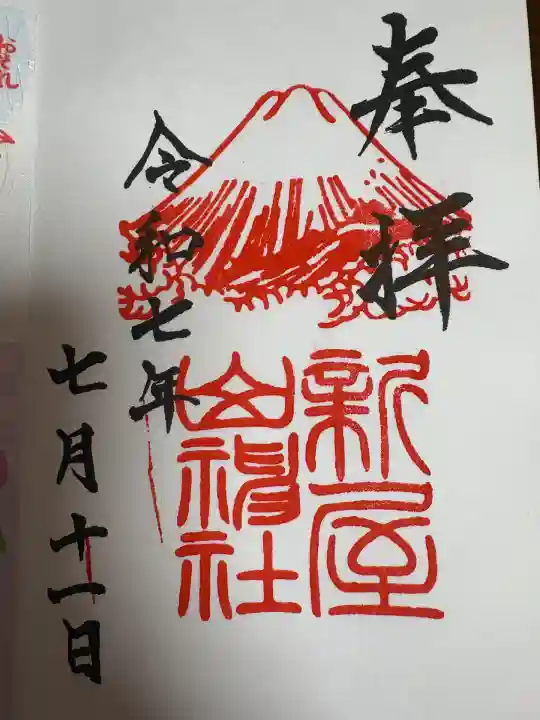 奉拝
新屋
山神社
令和七年
七月十一日